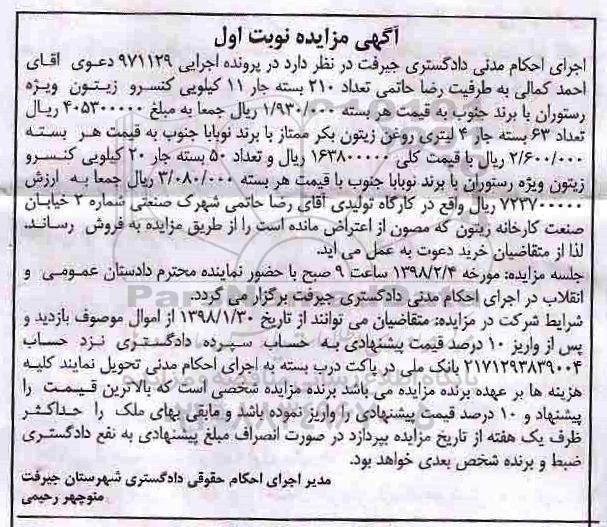 آگهی مزایده نوبت اول
اجرای احکام مدنی دادگستری جیرفت در نظر دارد در پرونده اجرایی ۹۷۱۱۲۹ دعوی آقای
احمد کمالی به طرفیت رضا حاتمی تعداد ۲۱۰ بسته جار ۱۱ کیلویی کنسرو زیتون ویژه
رستوران با برند جنوب به قیمت هر بسته ۱/۹۳۰/۰۰۰ ریال جمعا به مبلغ ۴۰۵۳۰۰۰۰۰ ریال
تعداد ۶۳ بسته جار ۴ لیتری روغن زیتون بکر ممتاز با برند نوبابا جنوب به قیمت هر بسته
۲/۶۰۰/۰۰۰ ریال با قیمت کلی ۱۶۳۸۰۰۰۰۰ ریال و تعداد ۵۰ بسته جار ۲۰ کیلویی کنسرو
زیتون ویژه رستوران با برند نوبابا جنوب با قیمت هر بسته ۳/۰۸۰/۰۰۰ ریال جمعا به ارزش
۷۲۳۷۰۰۰۰۰ ریال واقع در کارگاه تولیدی آقای رضا حاتمی شهرک صنعتی شماره ۲ خیابان
صنعت کارخانه زیتون که مصون از اعتراض مانده است را از طریق مزایده به فروش رساند.
لذا از متقاضیان خرید دعوت به عمل می اید.
جلسه مزایده: مورخه ۱۳۹۸/۲/۴ ساعت ۹ صبح با حضور نماینده محترم دادستان عمومی و
انقلاب در اجرای احکام مدنی دادگستری جیرفت برگزار می گردد.
شرایط شرکت در مزایده: متقاضیان می توانند از تاریخ ۱۳۹۸/۱/۳۰ از اموال موصوف بازدید و
پس از واریز ۱۰ درصد قیمت پیشنهادی به حساب سپرده دادگستری نزد حساب
۲۱۷۱۲۹۳۸۳۹۰۰۴ بانک ملی در پاکت درب بسته به اجرای احکام مدنی تحویل نمایند کلیه
هزینه ها بر عهده برنده مزایده می باشد برنده مزایده شخصی است که بالاترین قیمت را
پیشنهاد و ۱۰ درصد قیمت پیشنهادی را واریز نموده باشد و مابقی بهای ملک را حداکثر
ظرف یک هفته از تاریخ مزایده بپردازد در صورت انصراف مبلغ پیشنهادی به نفع دادگستری
ضبط و برنده شخص بعدی خواهد بود.
مدیر اجرای احکام حقوقی دادگستری شهرستان جیرفت
منوچهر رحیمی